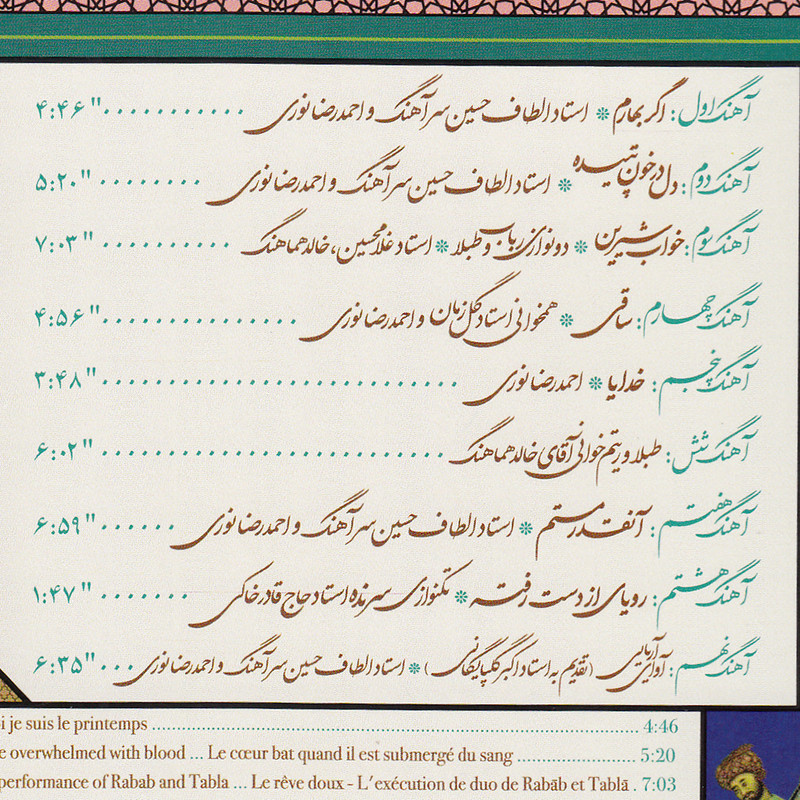 آهنگ اول: اگر بهارم * استاد الطاف حسین سرآهنگ و احمدرضا نوری ........... ۴:۴۶"
آهنگ دوم: دل در خون تپیده * استاد الطاف حسین سرآهنگ و احمدرضا نوری ........ ۵:۲۰"
آهنگ سوم: خواب شیرین * دونوازی رباب و طبلا * استاد غلام حسین، خالد هماهنگ .......... ۷:۰۳"
آهنگ چهارم: ساقی * همخوانی استاد گل زمان و احمدرضا نوری ................ ۴:۵۶"
آهنگ پنجم: خدایا * احمدرضا نوری ............................ ۳:۴۸"
آهنگ شش: طبلا و ریتم خوانی آقای خالد هماهنگ ........................... ۶:۰۲"
آهنگ هفتم: آنقدر مستم * استاد الطاف حسین سرآهنگ و احمدرضا نوری ...... ۶:۵۹"
آهنگ هشتم: رویای از دست رفته * تکنوازی سرنده استاد حاج قادر خاکی ....... ۱:۴۷"
آهنگ نهم: آوای آریایی (تقدیم به استاد اکبر گلپایگانی) * استاد الطاف حسین سرآهنگ و احمدرضا نوری ... ۶:۳۵"
i je suis le printemps ........ 4:46
e overwhelmed with blood ... Le cœur bat quand il est submergé du sang ........ 5:20
performance of Rabab and Tabla ... Le rêve doux - L'exécution de duo de Rabāb et Tablā . 7:03